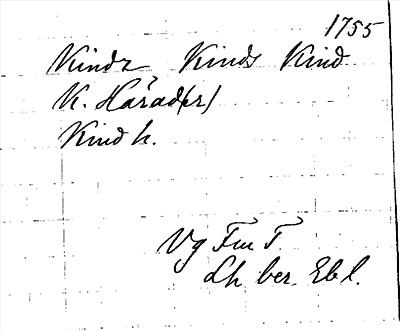 1755
Kindz Kinds Kind
K. Härad(er)
Kind h.
Vg Fm T.
Lh ber. Ebl.